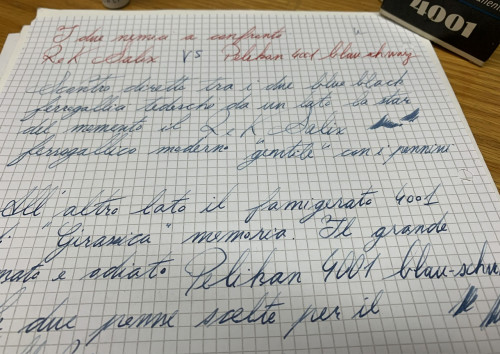 4001
I due nemici a confronto
R&K Salix vs Pelikan 4001 blau-schwarz
Scontro diretto tra i due blue black
ferrogallici tedeschi da un lato la star
del momento il R&K Salix
ferrogallico moderno "gentile" con i pennini
All'altro lato il famigerato 4001
"Giransica" memoria. Il grande
amato e odiato Pelikan 4001 blau-schw
due penne scelte per il